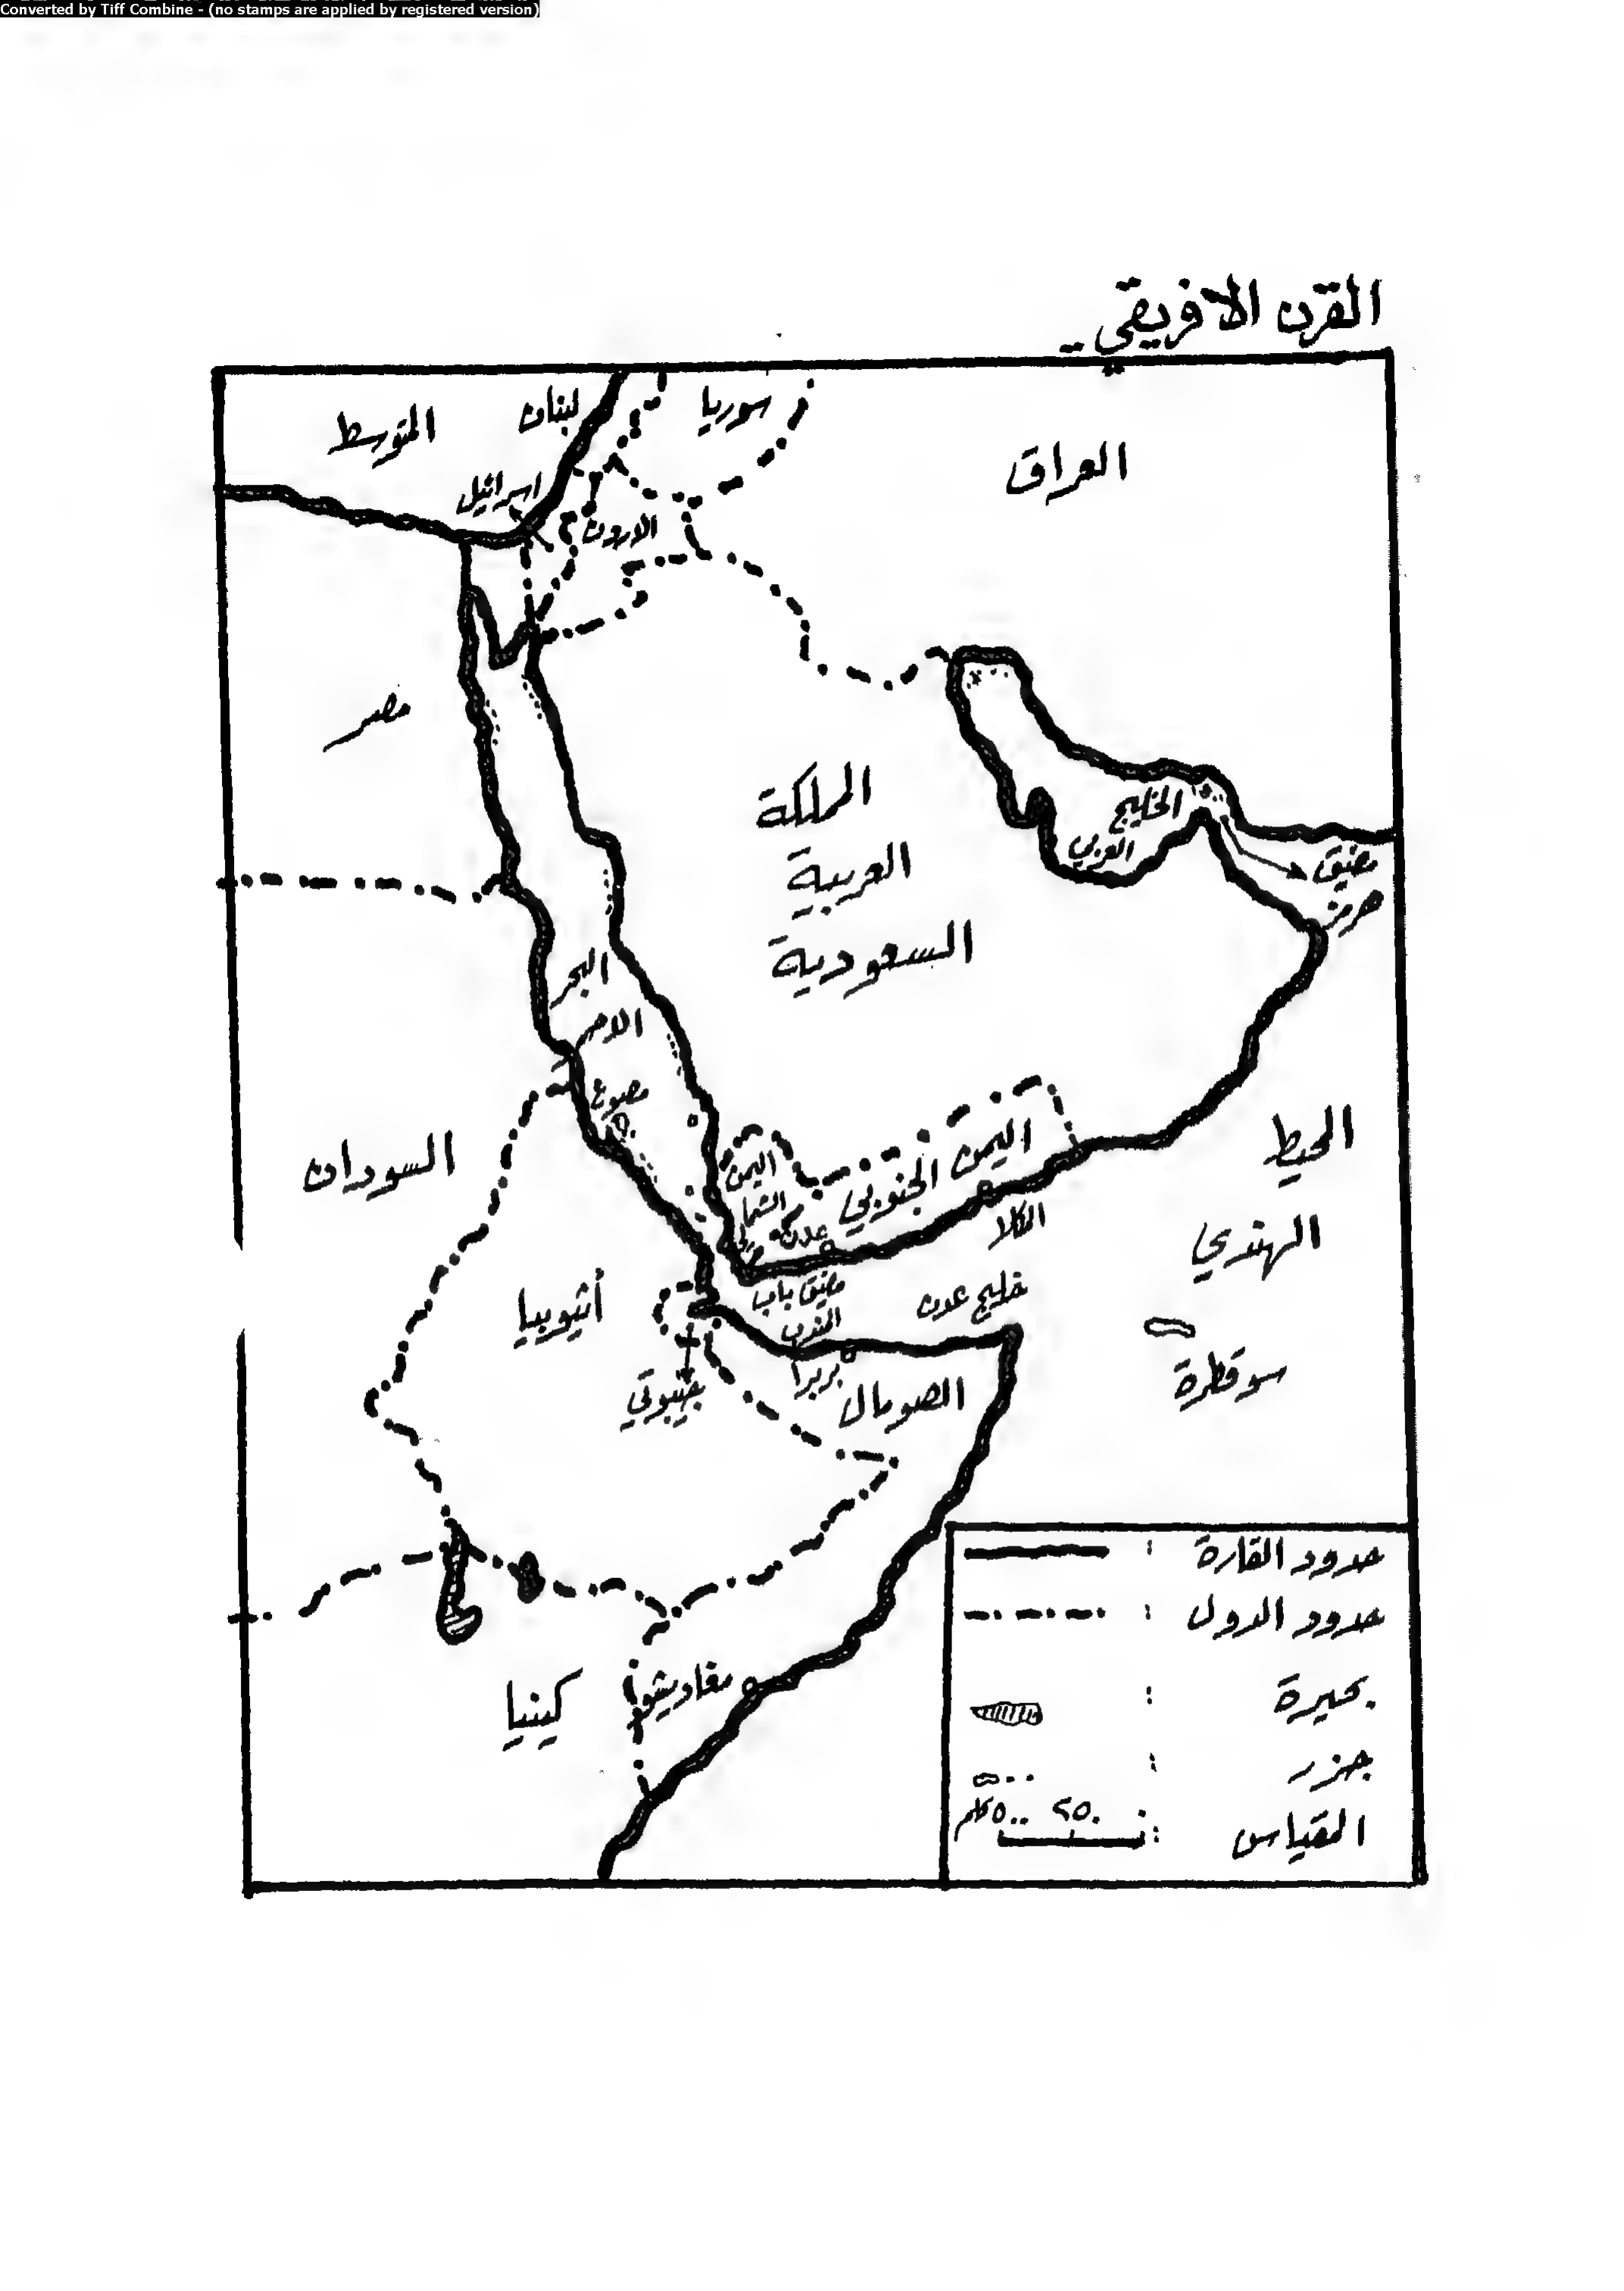 Converted by Tiff Combine - (no stamps are applied by registered version)
القرن الافريقي
المتوسط
لبنان
سوريا
العراق
اسرائيل
الاردن
مصر
المملكة
العربية
السعودية
الخليج
العربي
مضيق
هرمز
البحر
الاحمر
مصوع
السودان
اليمن
اليمن
الجنوبي
عدن
المكلا
المحيط
الهندي
خليج عدن
مضيق باب
المندب
أثيوبيا
جيبوتي
بربرا
الصومال
سوقطرة
كينيا
مقاديشو
حدود القارة :
حدود الدول :
بحيرة :
جزر :
المقياس :
٥٠٠كلم ٢٥٠ ٠